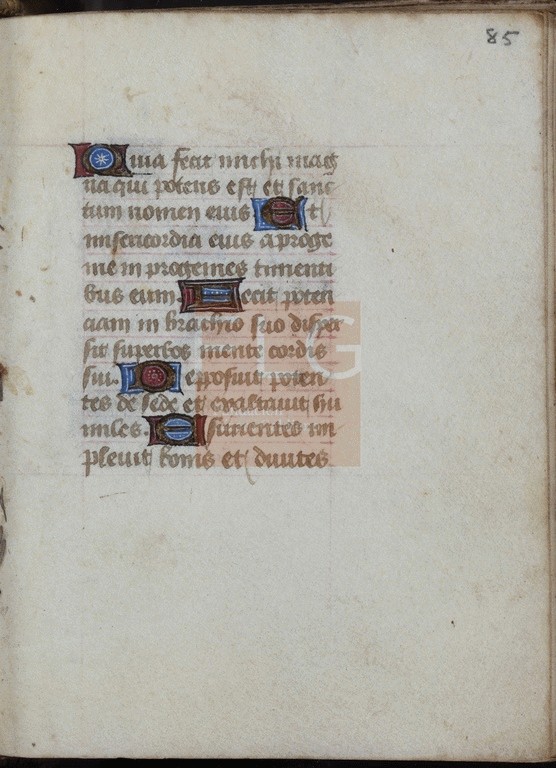 85
Quia fecit michi mag
na qui potens est et sanc
tum nomen eius. Et
misericordia eius a proge
nie in progenies timenti
bus eum. Fecit poten
ciam in brachio suo disper
sit superbos mente cordis
sui. Deposuit poten
tes de sede et exaltavit hu
miles. Esurientes im
plevit bonis et divites
LG